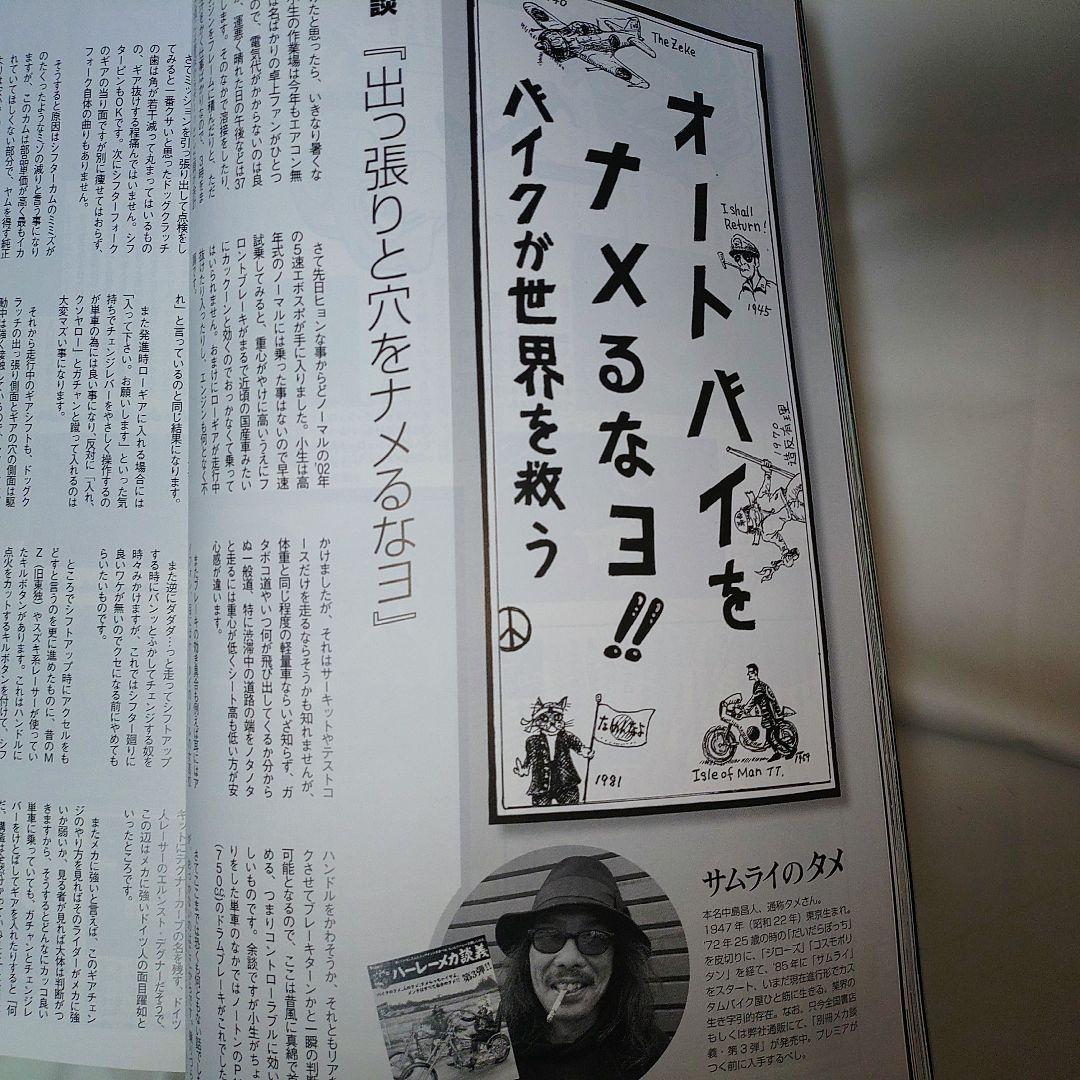 オートバイを
ナメるなヨ!!
バイクが世界を救う
The Zeke
I shall
Return!
1945
1970
造反有理
なめんなよ
1981
Isle of Man TT.
1959
談
『出っ張りと穴をナメるなヨ』
たと思ったら、いきなり暑くな
小生の作業場は今年もエアコン無
は名ばかりの卓上ファンがひとつ
ので、電気代がかからないのは良
、運悪く晴れた日の午後などは37
します。そのなかで溶接をしたり、
ンジンをフレームに積んだりと、ただ
さて先日ヒョンな事からどノーマルの'02年
の5速エボスポが手に入りました。小生は高
年式のノーマルには乗った事はないので早速
試乗してみると、重心がやけに高いうえにフ
ロントブレーキがまるで近頃の国産車みたい
にカックーンと効くのでおっかなくて乗って
はいられません。おまけにローギアが走行中
抜けたり入ったりし、エンジンも何となく不
かけましたが、それはサーキットやテストコ
ースだけを走るならそうかも知れませんが、
体重と同じ程度の軽量車ならいざ知らず、ガ
タボコ道やいつ何が飛び出してくるか分から
ぬ一般道、特に渋滞中の道路の端をノタノタ
と走るには重心が低くシート高も低い方が安
心感が違います。
ハンドルをかわそうか、それともリア
クさせてブレーキターンかと一瞬の判断
可能となるので、ここは昔風に真綿で首
める、つまりコントローラブルに効い
しいものです。余談ですが小生がちょ
りをした単車のなかではノートンのP
(750g)のドラムブレーキがこれでし
さてミッションを引っ張り出して点検をし
てみると一番クサいと思ったドッグクラッチ
の歯は角が若干減って丸まってはいるもの
の、ギア抜けする程痛んではいません。シフ
タービンもOKです。次にシフターフォーク
のギアの当り面ですが別に痩せてはおらず、
フォーク自体の曲りもありません。
そうすると原因はシフターカムのミミズが
のたくったようなミゾの減りと言う事になり
ますが、このカムは部品単価が高く最もイカ
れていてほしくない部分で、ヤムを得ず純正
れ」と言っているのと同じ結果になります。
また発進時ローギアに入れる場合には
「入って下さい。お願いします」といった気
持ちでチェンジレバーをやさしく操作するの
が単車の為には良い事になり、「反対に「入れ、
クソヤロー」とガチャンと蹴って入れるのは
大変マズい事になります。
それから走行中のギアシフトも、ドックク
ラッチの出っ張り側面とギアの穴の側面は駆
また逆にダダダ…っと走ってシフトアップ
する時にバンッとふかしてチェンジする奴を
時々みかけますが、これではシフター廻りに
良いワケが無いのでクセになる前にやめても
らいたいものです。
ところでシフトアップ時にアクセルをも
どすと言うのを更に進めたものに、昔のM
Z(旧東独)やスズキ系レーサーが使ってい
たキルボタンがあります。これはハンドルに
点火をカットするキルボタンを付けて、シフ
キットにデグナーカーブの名を残す、ドイツ
人レーサーのエルンスト・デグナーだそうで、
この辺はメカに強いドイツ人の面目躍如と
いったところです。
またメカに強いと言えば、このギアチェン
ジのやり方を見ればそのライダーがメカに強
いか弱いか、見る者が見れば大体は判断がつ
きますから、そうするとどんなにカッコ良い
単車に乗っていても、ガチャンとチェンジレ
バーをけとばしてギアを入れたりすると「何
サムライのタメ
本名中島昌人、通称タメさん。
1947年(昭和22年)東京生まれ。
'72年25歳の時の「だいだらぼっち」
を皮切りに、「ジローズ」「コスモポリ
タン」を経て、'85年に「サムライ」
をスタート、いまだ現在進行形でカス
タムバイク屋ひと筋に生きる、業界の
生き字引的存在。なお、只今全国書店
もしくは弊社通販にて、「別冊メカ談
義・第3弾」が発売中。プレミアが
つく前に入手するべし。
ハーレーメカ談義
第3弾!!